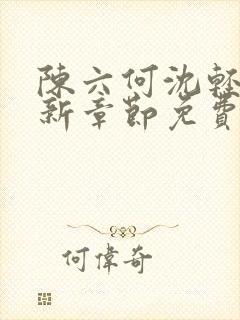 陳六何沈輕
新章節免費
何偉奇